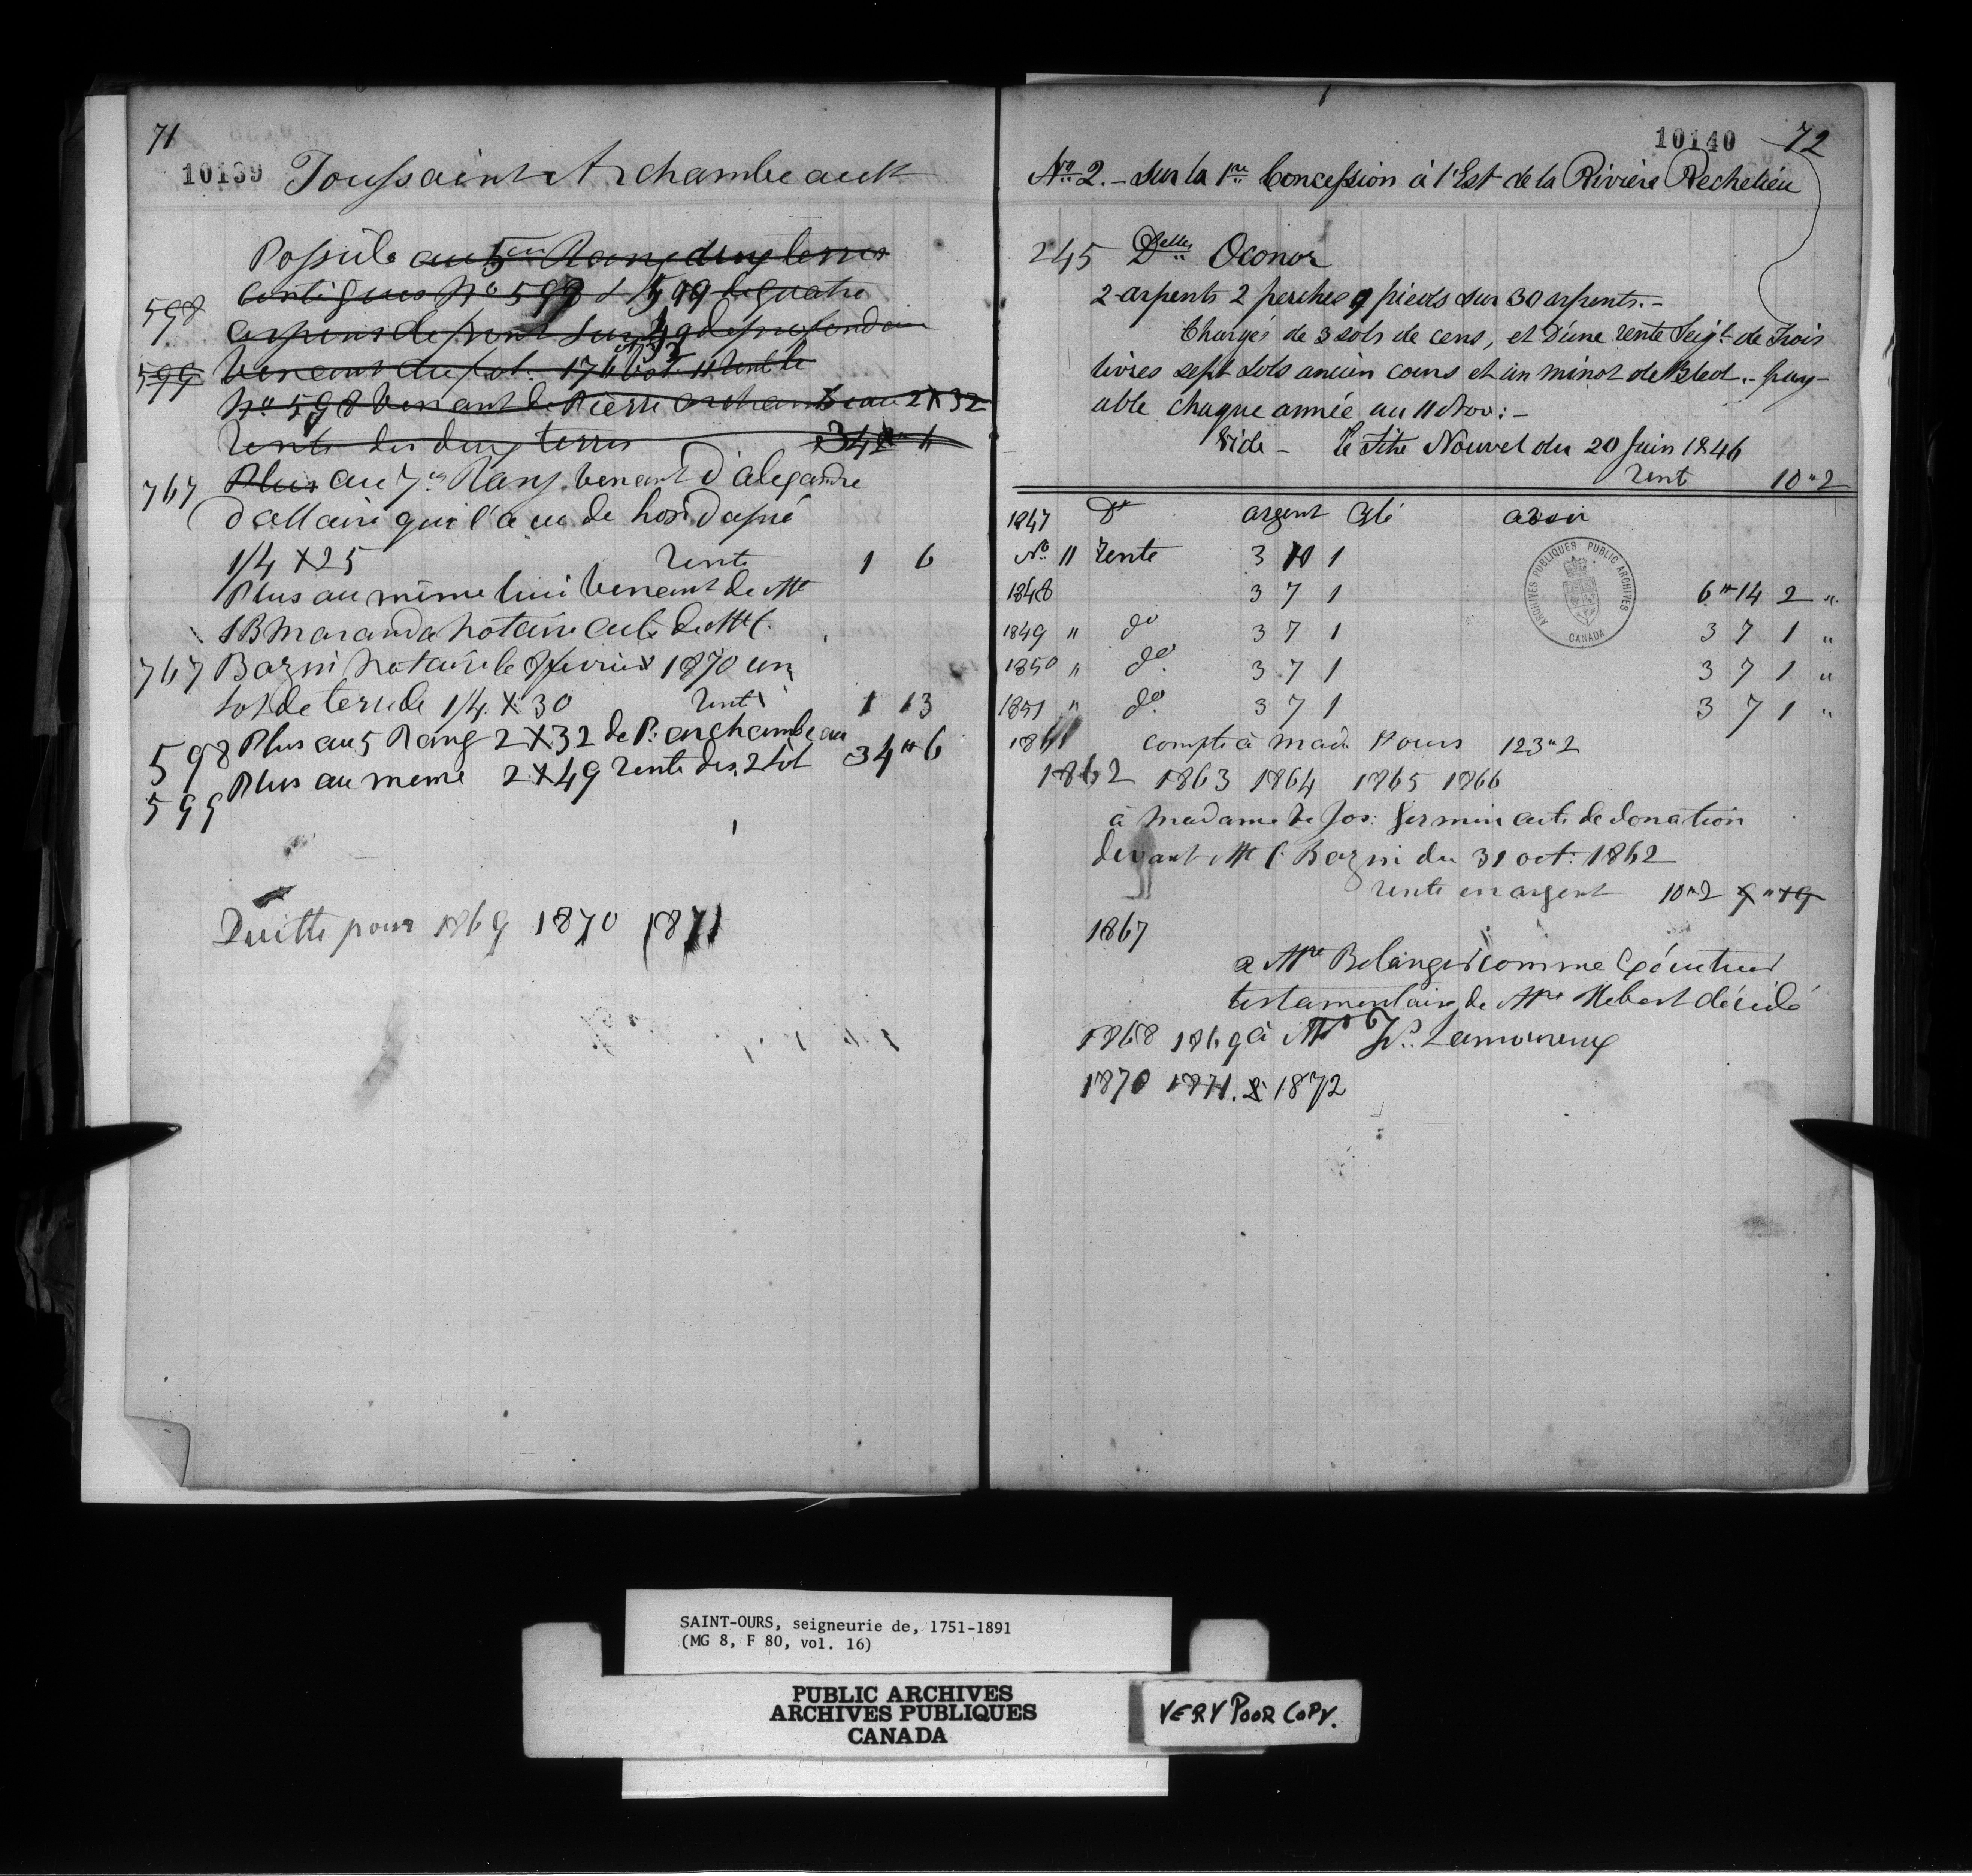 71
10139 Toussaint Archambeault
Possède au 5em Rang deux terres
598 Contigues No 598 & 599 de quatre
arpens de front sur 49 de profondeur
599 Venant du lot
No 598 Venant de Pierre archambeau 2 X 32
Rente des deux terres 342 "
767 Plus au 7em Rang venant d'alexandre
dallaire qui l'a eu de
1/4 X 25 Rente 1 6
Plus au même lui Venant de Mr
JB Maranda Notaire acte de Me C.
767 Bazin Notaire le février 1870 un
lot de terre de 1/4 X 30 Rente 1 13
598 Plus au 5 Rang 2 X 32 de P. archambeau
599 Plus au meme 2 X 49 rente des 2 lot 34 " 6
Quitte pour 1869 1870 1871
10140 72
No 2. - sur la 1re Concession à l'Est de la Rivière Rechelieu
245 Delle Oconor
2 arpents 2 perches 9 pieds sur 30 arpents. -
Chargés de 3 sols de cens, et D'une rente Seigle de Trois
livres sept sols ancien cours et un minot de Bled .. pay-
able chaque année au 11 Nov: -
Vide - le Titre Nouvel du 20 Juin 1846
Rent 10 " 2
1847 Dt argent Blé avoir
No 11 Rente 3 1
1848 3 7 1 6 " 14 2 "
1849 " do 3 7 1 3 7 1 "
1850 " do 3 7 1 3 7 1 "
1851 " do 3 7 1 3 7 1 "
1861 compte à mad. 123 " 2
1862 1863 1864 1865 1866
à madame Ve Jos: Germin acte de donation
devant Me C. Bazin du 31 oct: 1862
rente en argent 10 " 2 9 " 19
1867
a Mr Belanger comme Exécuteur
testamentaire de Mre Hebert décidé
1868 1869 à Mr Lamoureux
1870 1871. & 1872
ARCHIVES PUBLIQUES PUBLIC ARCHIVES
CANADA
SAINT-OURS, seigneurie de, 1751-1891
(MG 8, F 80, vol. 16)
PUBLIC ARCHIVES
ARCHIVES PUBLIQUES
CANADA
VERY POOR COPY.